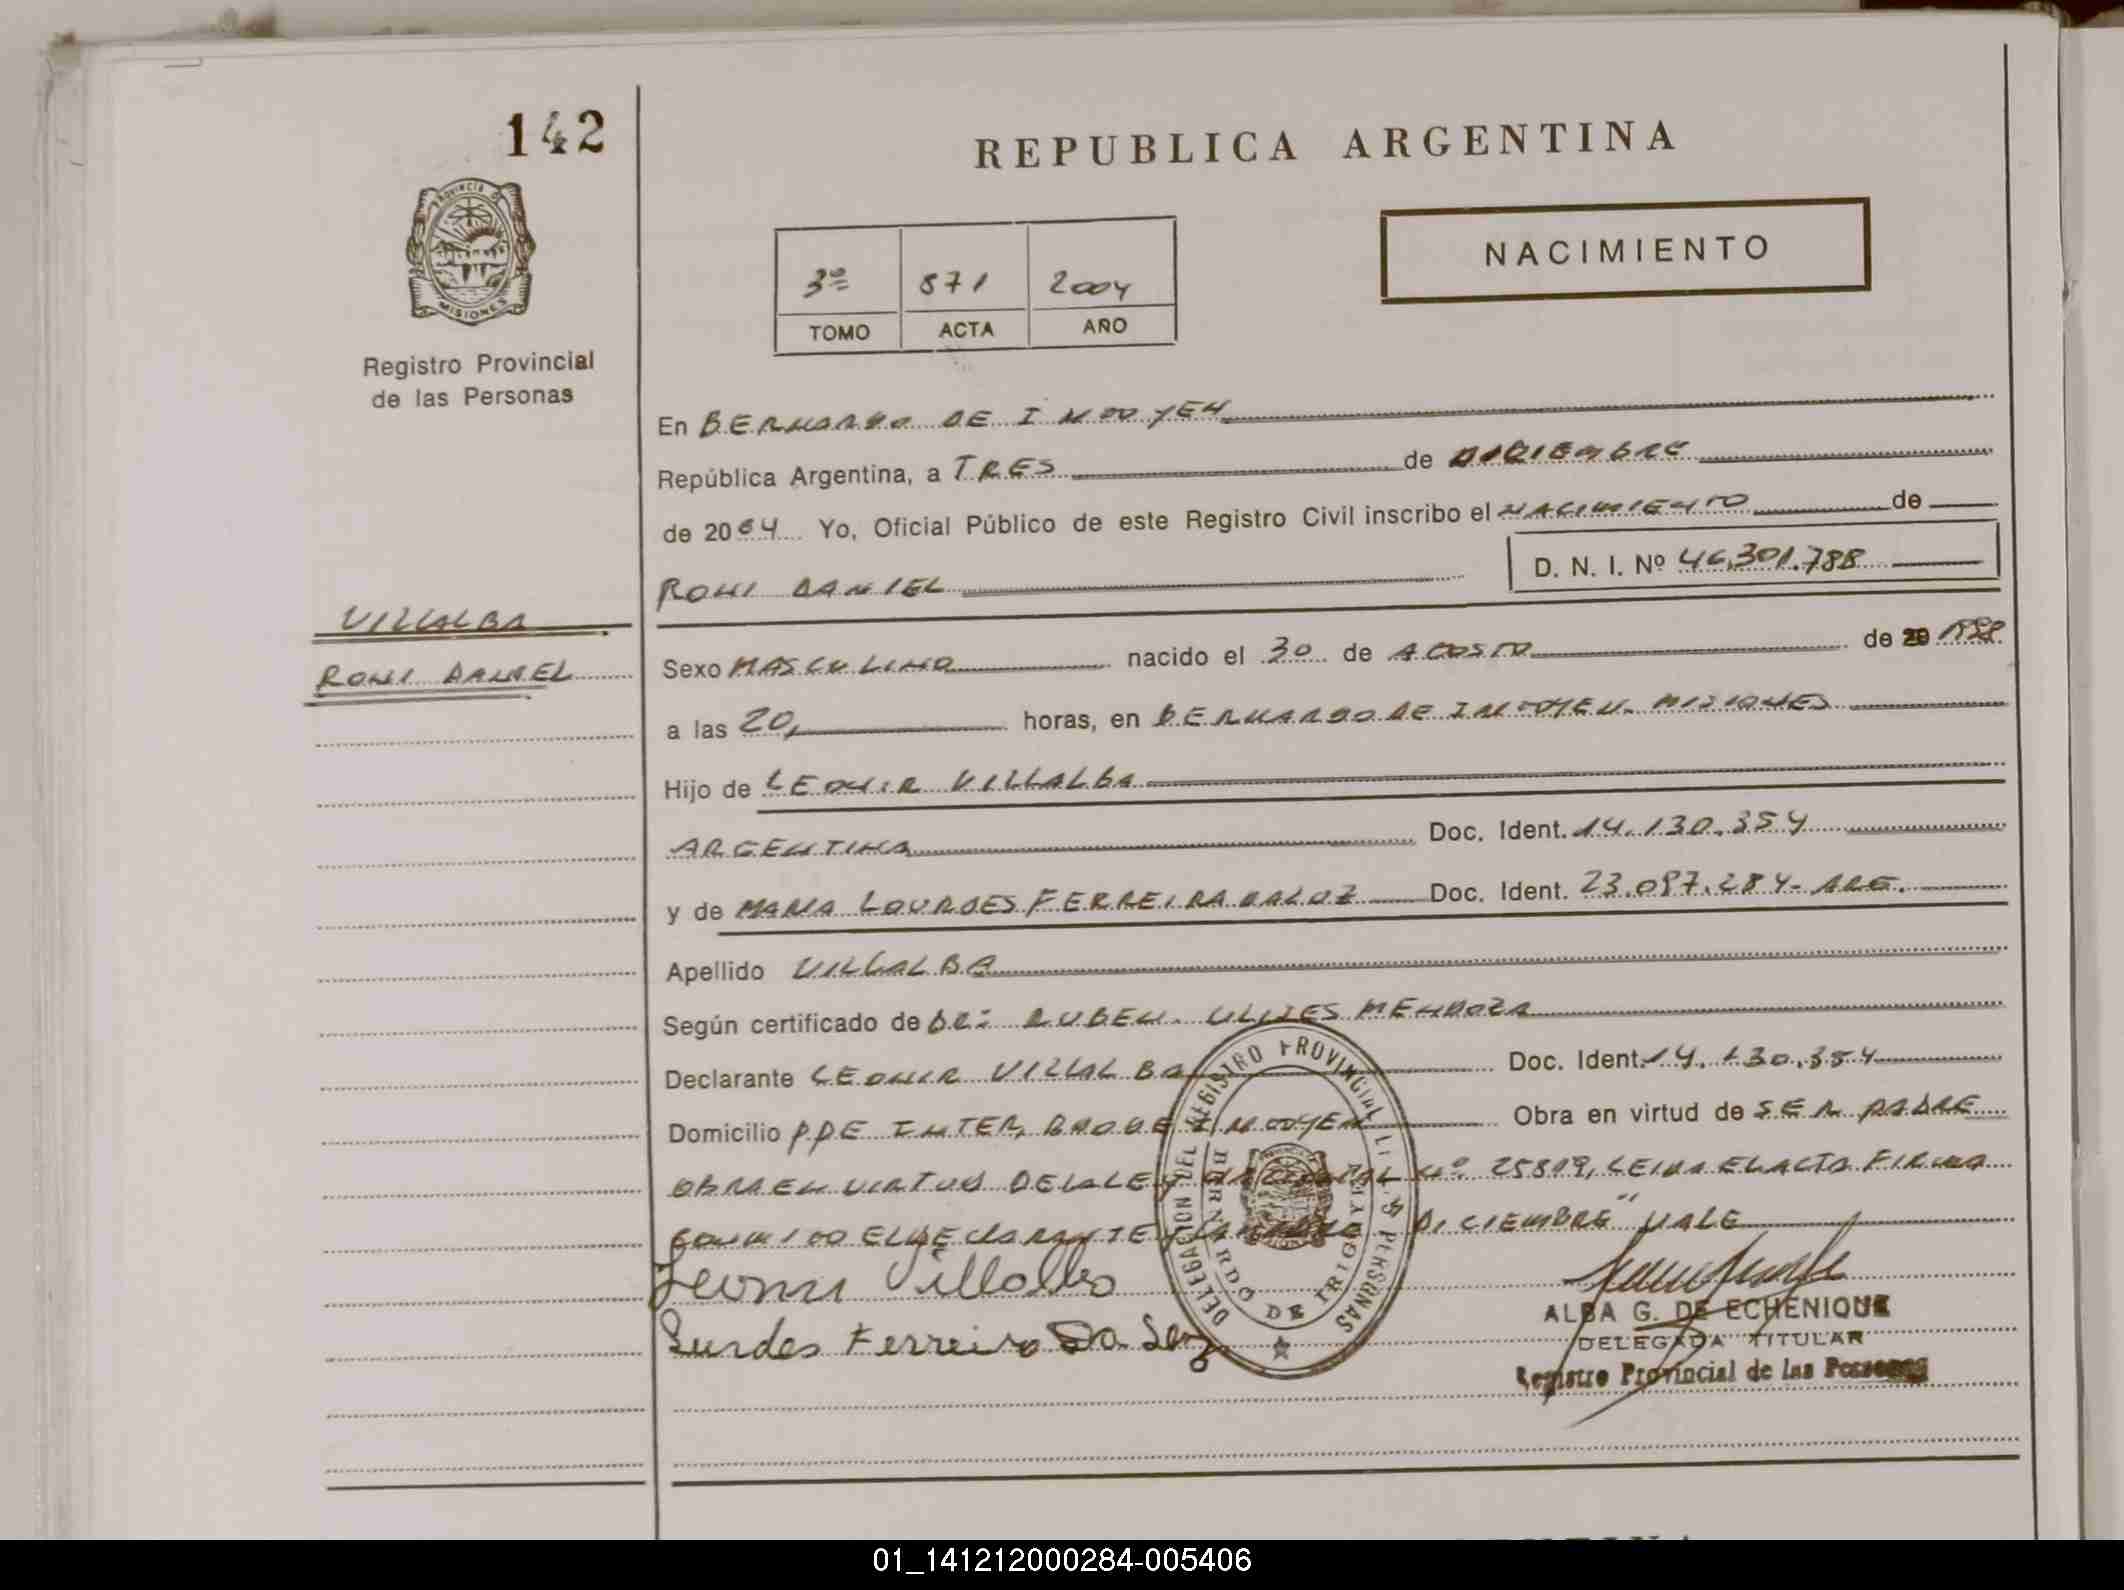 142
REPUBLICA ARGENTINA
PROVINCIA DE MISIONES
Registro Provincial
de las Personas
NACIMIENTO
3º 871 2004
TOMO ACTA AÑO
En BERNARDO DE IRIGOYEN
República Argentina, a TRES de DICIEMBRE
de 2004 Yo, Oficial Público de este Registro Civil inscribo el NACIMIENTO de
RONI DANIEL D. N. I. Nº 46.301.788
VILLALBA
RONI DANIEL
Sexo MASCULINO nacido el 30 de AGOSTO de 20
a las 20, horas, en BERNARDO DE IRIGOYEN. MISIONES
Hijo de LEONIR VILLALBA
ARGENTINA Doc. Ident. 14.130.354
y de MARIA LOURDES FERREIRA DALUZ Doc. Ident. 23.097.284- ARG.
Apellido VILLALBA
Según certificado de DR: RUBEN. ULISES MENDOZA
Declarante LEONIR VILLALBA Doc. Ident. 14.130.354
Domicilio PPE INTER, BRDO DE IRIGOYEN Obra en virtud de SER PADRE
OBRA EN VIRTUD DE LA LEY NACIONAL Nº. 25819, LEIDA EL ACTA FIRMA
CONMIGO EL DECLARANTE DICIEMBRE" VALE
Leonir Villalba
Lurdes Ferreira Da Luz
DELEGACION DEL REGISTRO PROVINCIAL DE LAS PERSONAS
BERNARDO DE IRIGOYEN
ALBA G. DE ECHENIQUE
DELEGADA TITULAR
Registro Provincial de las Personas
01_141212000284-005406